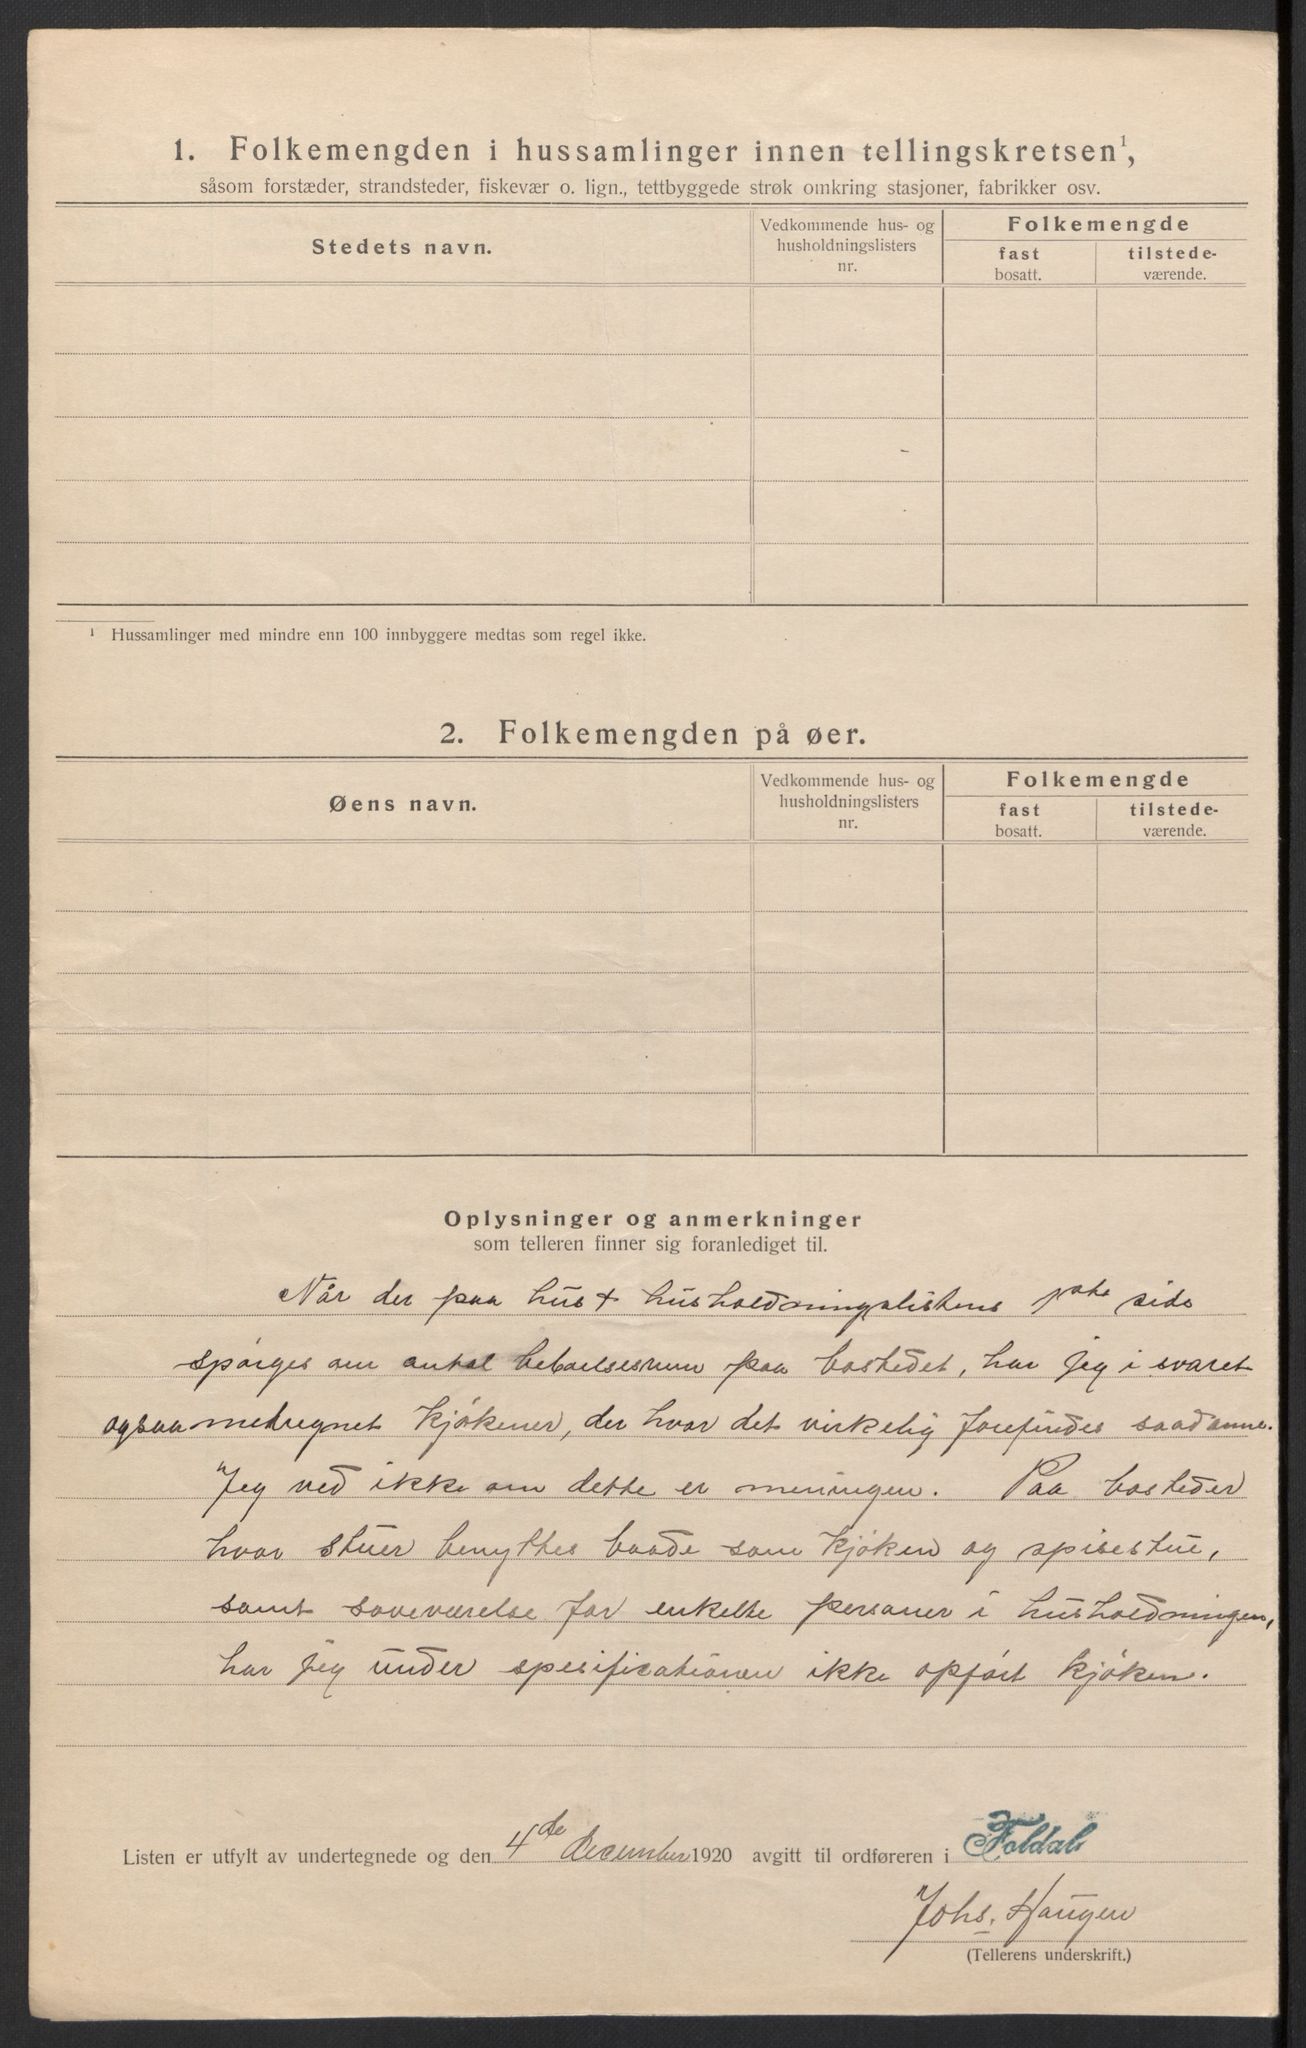 1. Folkemengden i hussamlinger innen tellingskretsen¹,
såsom forstæder, strandsteder, fiskevær o. lign., tettbyggede strøk omkring stasjoner, fabrikker osv.
Stedets navn.
Vedkommende hus- og
husholdningslisters
nr.
Folkemengde
fast
bosatt.
tilstede-
værende.
¹ Hussamlinger med mindre enn 100 innbyggere medtas som regel ikke.
2. Folkemengden på øer.
Øens navn.
Vedkommende hus- og
husholdningslisters
nr.
Folkemengde
fast
bosatt.
tilstede-
værende.
Oplysninger og anmerkninger
som telleren finner sig foranlediget til.
Når der paa hus & husholdningslistens 1ste side
spørges om antal beboelsesrum paa bostedet, har jeg i svaret
ogsaa medregnet kjøkener, der hvor det virkelig forefindes saadanne.
Jeg ved ikke om dette er meningen. Paa bosteder
hvor stuer benyttes baade som kjøken og spisestue,
samt soveværelse for enkelte personer i husholdningen,
har jeg under spesificationen ikke opført kjøken.
Listen er utfylt av undertegnede og den 4de december 1920 avgitt til ordføreren i Foldal
Johs. Haugen
(Tellerens underskrift.)